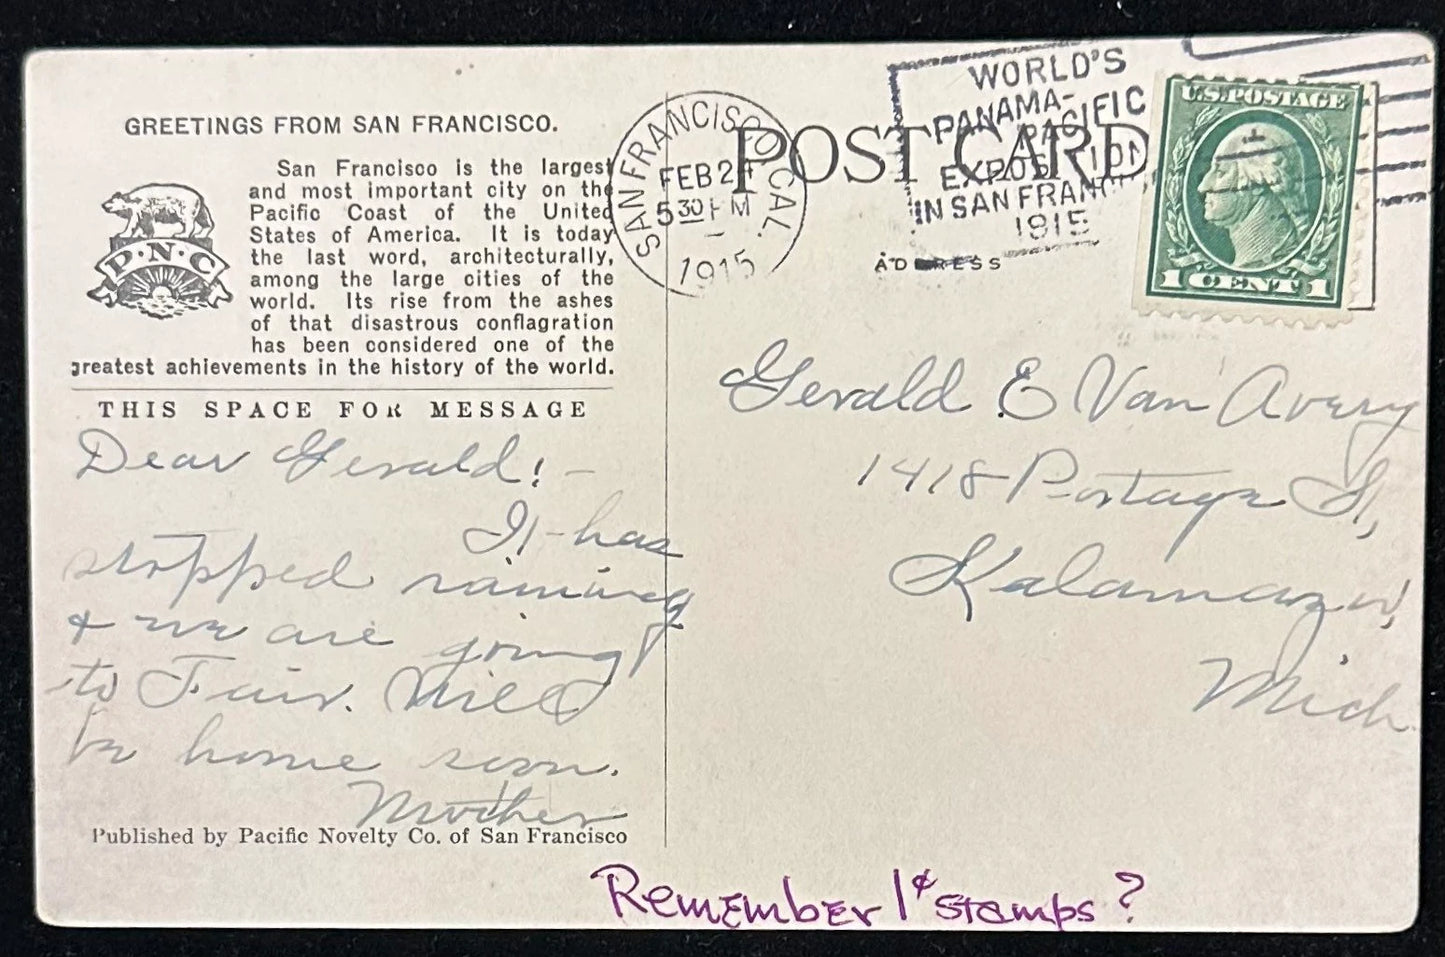 GREETINGS FROM SAN FRANCISCO.
San Francisco is the largest
and most important city on the
Pacific Coast of the United
States of America. It is today
the last word, architecturally,
among the large cities of the
world. Its rise from the ashes
of that disastrous conflagration
has been considered one of the
greatest achievements in the history of the world.
P·N·C
THIS SPACE FOR MESSAGE
Dear Gerald! -
It has
stopped raining
& we are going
to Fair. Will
be home soon.
Mother
Published by Pacific Novelty Co. of San Francisco
SAN FRANCISCO, CAL.
FEB 24
5 30 PM
1915
POST CARD
WORLD'S
PANAMA-
PACIFIC
EXPOSITION
IN SAN FRANCI
1915
U.S. POSTAGE
1 CENT 1
ADDRESS
Gerald E Van Avery
1418 Portage St,
Kalamazoo,
Mich
Remember 1¢ stamps?